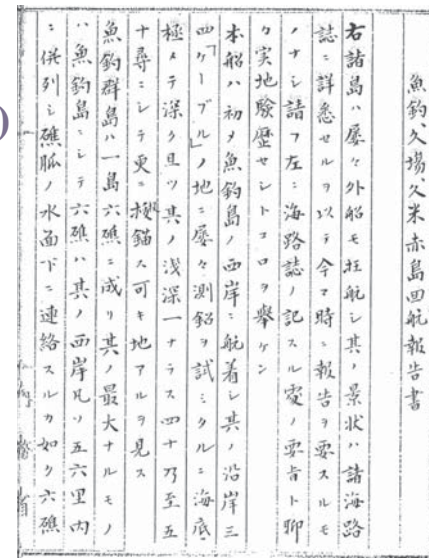 魚釣、久場、久米赤島回航報告書
右諸島ハ屡々外船モ抂航シ其ノ景状ハ諸海路
誌ニ詳悉セルヲ以テ今マ時ニ報告ヲ要スルモ
ノナシ請フ左ニ海路誌ノ記スル處ノ要旨ト聊
ケ実地験歴セシトコロヲ挙ケン
本船ハ初メ魚釣島ノ西岸ニ航着シ其ノ沿岸三
四「ケーブル」ノ地ニ屡々測鉛ヲ試ミタルニ海底
極メテ深ク且ツ其ノ浅深一ナラス四十乃至五
十尋ニシテ更ニ投錨ス可キ地アルヲ見ス
魚釣群島ハ一島六礁ニ成リ其ノ最大ナルモノ
ハ魚釣島ニシテ六礁ハ其ノ西岸凡ソ五六里内
ニ併列シ礁脈ノ水面下ニ連絡スルカ如ク六礁